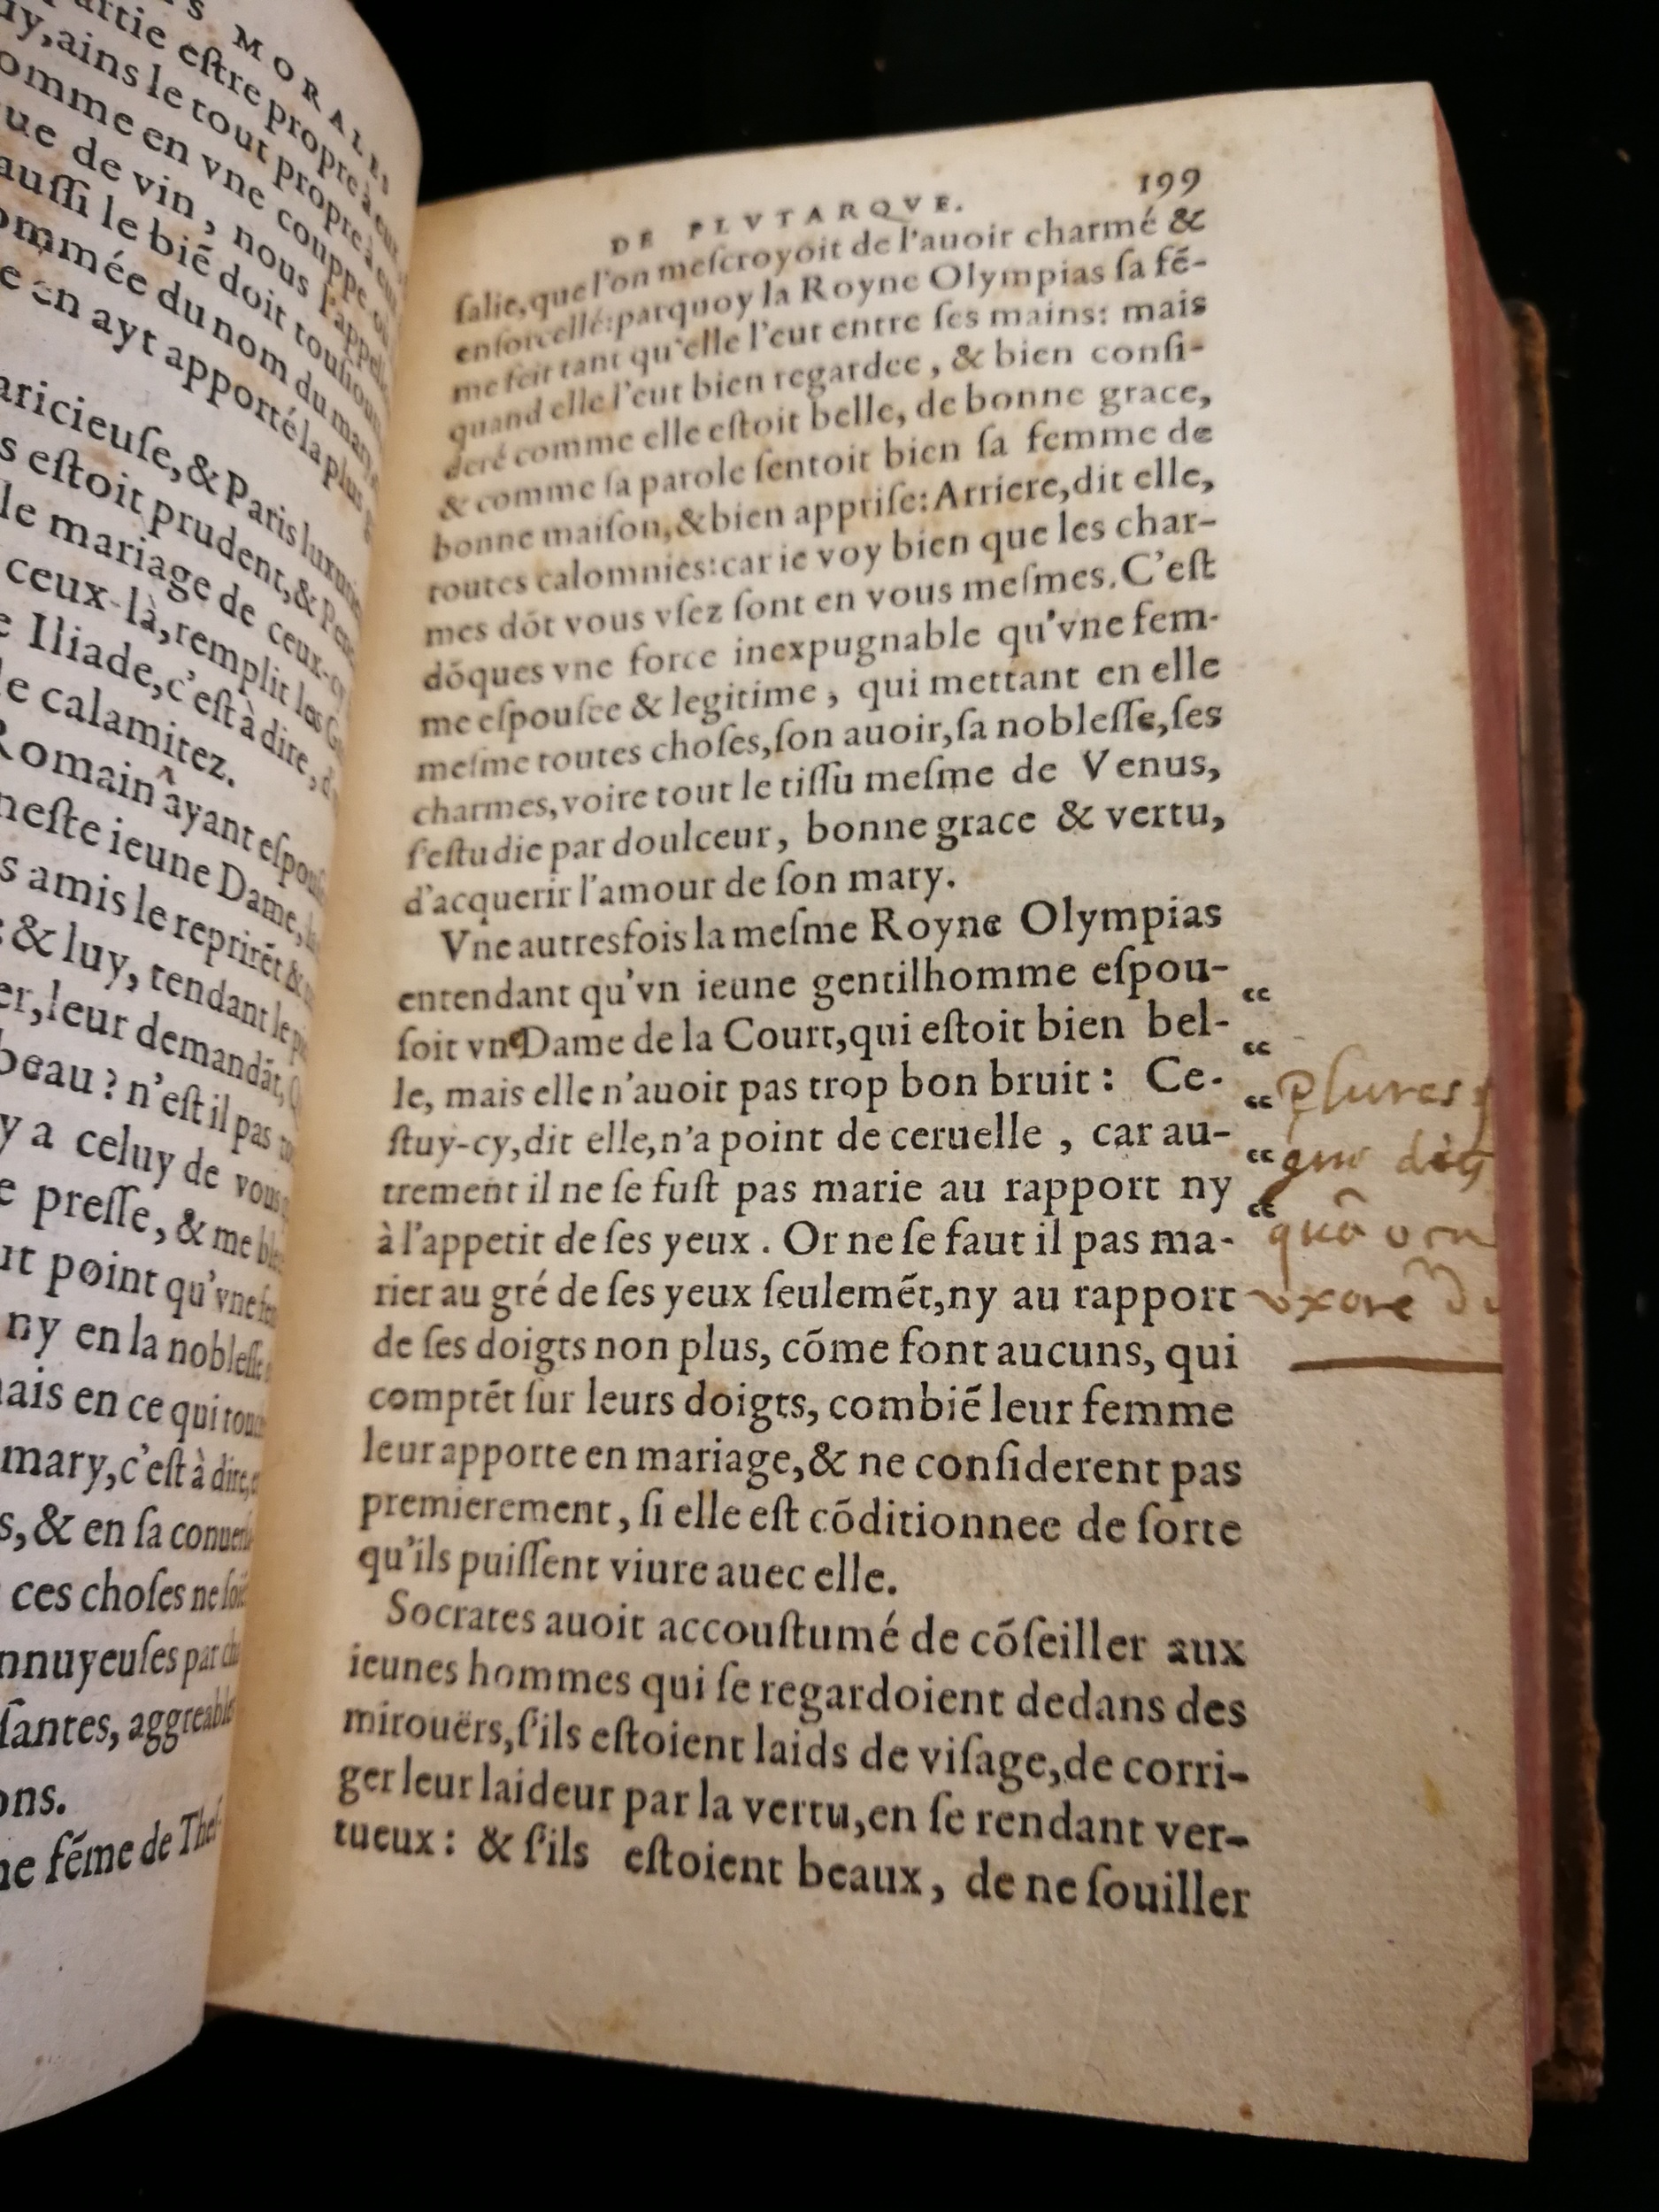 S MORALES
artie eſtre propre à eux
uy, ains le tout propre à
omme en vne couppe où
ue de vin, nous l'appell
auſſi le biē doit touſiours
ommée du nom du mary
e en ayt apporté la plus
aricieuſe, & Paris luxu
s eſtoit prudent, & Pen
le mariage de ceux-cy
ceux-là, remplit les G
e Iliade, c'eſt à dire, d
e calamitez.
Romain ayant eſpouſ
neſte ieune Dame,
s amis le reprirēt &
: & luy, tendant le p
er, leur demandāt,
beau ? n'eſt il pas
y a celuy de vous
e preſſe, & me bleſ
ut point qu'vne fem
ny en la nobleſſe
ais en ce qui touch
mary, c'eſt à dire,
s, & en ſa conuerſ
ces choſes ne ſoi
nnuyeuſes par ch
ſantes, aggreable
ons.
ne fēme de Theſ-
DE PLVTARQVE. 199
ſalie, que l'on meſcroyoit de l'auoir charmé &
enſorcellé: parquoy la Royne Olympias ſa fē-
me feit tant qu'elle l'eut entre ſes mains: mais
quand elle l'eut bien regardee, & bien conſi-
deré comme elle eſtoit belle, de bonne grace,
& comme ſa parole ſentoit bien ſa femme de
bonne maiſon, & bien appriſe: Arriere, dit elle,
toutes calomnies: car ie voy bien que les char-
mes dōt vous vſez ſont en vous meſmes. C'eſt
dōques vne force inexpugnable qu'vne fem-
me eſpouſee & legitime, qui mettant en elle
meſme toutes choſes, ſon auoir, ſa nobleſſe, ſes
charmes, voire tout le tiſſu meſme de Venus,
ſ'eſtudie par doulceur, bonne grace & vertu,
d'acquerir l'amour de ſon mary.
Vne autresfois la meſme Royne Olympias
entendant qu'vn ieune gentilhomme eſpou- “
ſoit vne Dame de la Court, qui eſtoit bien bel- “
le, mais elle n'auoit pas trop bon bruit : Ce- “
ſtuy-cy, dit elle, n'a point de ceruelle , car au- “
trement il ne ſe fuſt pas marie au rapport ny “
à l'appetit de ſes yeux . Or ne ſe faut il pas ma-
rier au gré de ſes yeux ſeulemēt, ny au rapport
de ſes doigts non plus, cōme font aucuns, qui
comptēt ſur leurs doigts, combiē leur femme
leur apporte en mariage, & ne conſiderent pas
premierement, ſi elle eſt cōditionnee de ſorte
qu'ils puiſſent viure auec elle.
Socrates auoit accouſtumé de cōſeiller aux
ieunes hommes qui ſe regardoient dedans des
mirouërs, ſ'ils eſtoient laids de viſage, de corri-
ger leur laideur par la vertu, en ſe rendant ver-
tueux : & ſ'ils eſtoient beaux, de ne ſouiller
plures
quo dig
quā
vxorē